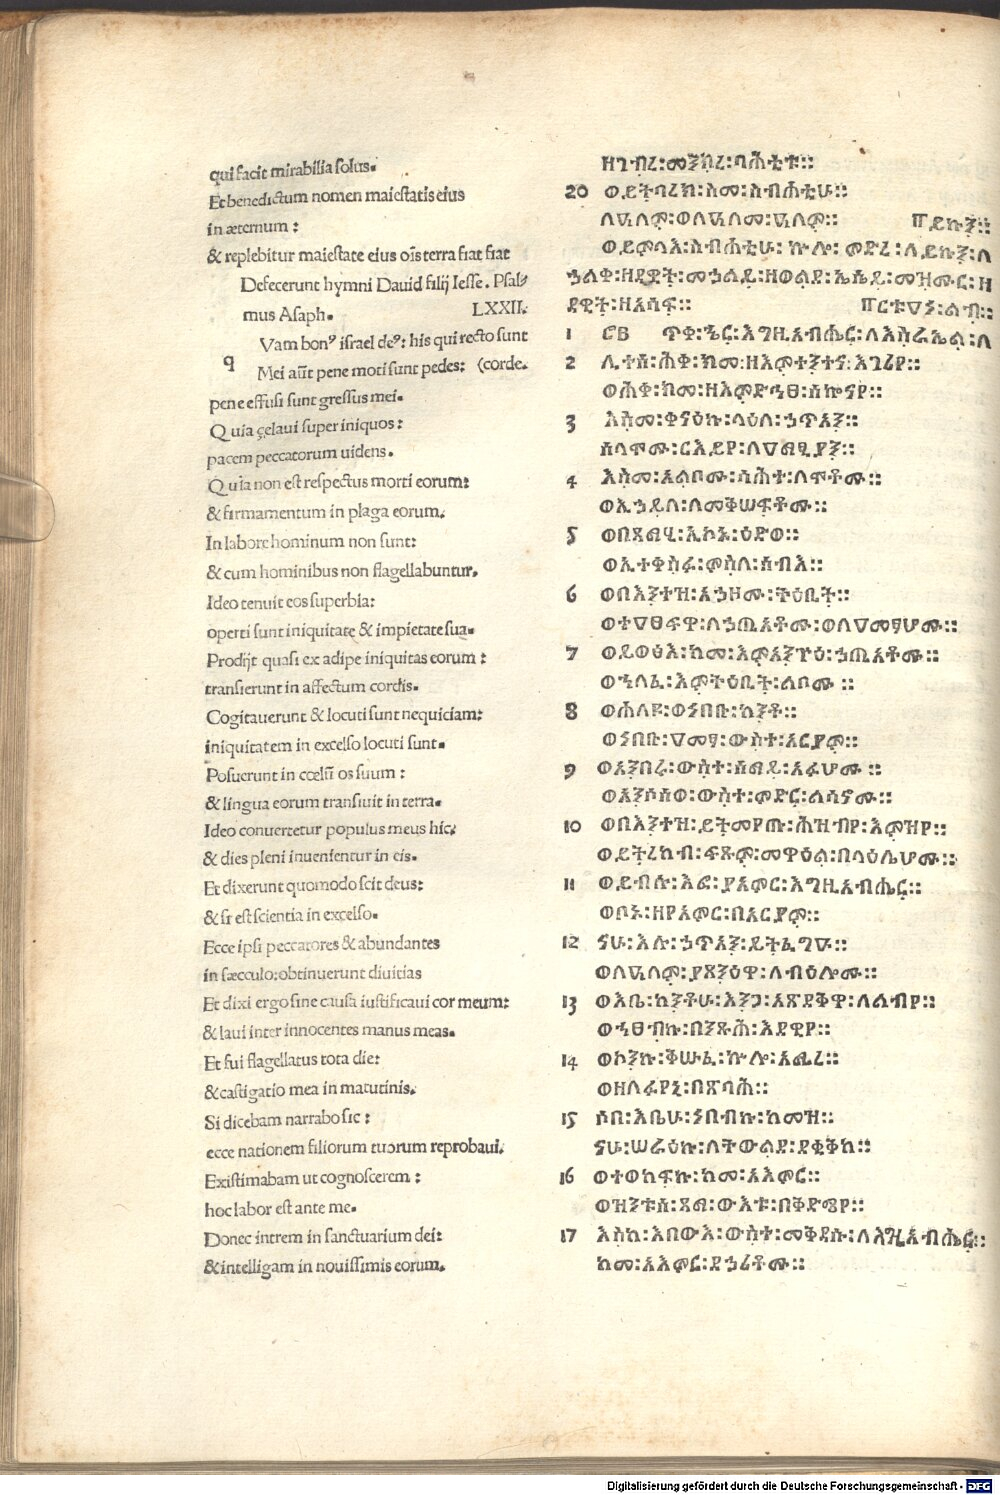 qui facit mirabilia solus.
Et benedictum nomen maiestatis eius
in æternum :
& replebitur maiestate eius oĩs terra fiat fiat
Defecerunt hymni Dauid filij Iesse. Psal⸗
mus Asaph. LXXII.
q Vam bonꝰ israel deꝰ: his qui recto sunt
Mei aũt pene moti sunt pedes: (corde.
pene effusi sunt gressus mei.
Quia çelaui super iniquos :
pacem peccatorum uidens.
Quia non est respectus morti eorum:
& firmamentum in plaga eorum.
In labore hominum non sunt:
& cum hominibus non flagellabuntur.
Ideo tenuit eos superbia:
operti sunt iniquitate & impietate sua.
Prodijt quasi ex adipe iniquitas eorum :
transierunt in affectum cordis.
Cogitauerunt & locuti sunt nequiciam:
iniquitatem in excelso locuti sunt.
Posuerunt in cœlũ os suum :
& lingua eorum transiuit in terra.
Ideo conuertetur populus meus hic:
& dies pleni inuenientur in eis.
Et dixerunt quomodo scit deus:
& si est scientia in excelso.
Ecce ipsi peccatores & abundantes
in sæculo: obtinuerunt diuitias
Et dixi ergo sine causa iustificaui cor meum:
& laui inter innocentes manus meas.
Et fui flagellatus tota die:
& castigatio mea in matutinis.
Si dicebam narrabo sic :
ecce nationem filiorum tuorum reprobaui.
Existimabam ut cognoscerem :
hoc labor est ante me.
Donec intrem in sanctuarium dei:
& intelligam in nouissimis eorum.
ዘገብረ፡መንክረ፡ባሕቲቱ።
20 ወይትባረክ፡ስመ፡ስብሐቲሁ።
ለዓለም፡ወለዓለመ፡ዓለም። ይኩን።
ወይምላእ፡ስብሐቲሁ፡ኵሎ፡ምድረ፡ለይኩን፡ለ
ኀልቀ፡ዘዳዊት፡መኀልይ፡ዘወልደ፡እሴይ፡መዝሙር፡ዘ
ዳዊት፡ዘአሳፍ። ርቱዓነ፡ልብ።
1 ጥቀ፡ኄር፡እግዚአብሔር፡ለእስራኤል፡ለ
2 ሊተሰ፡ሕቀ፡ከመ፡ዘእምተንተና፡እገረየ።
ወሕቀ፡ከመ፡ዘእምድኅፀ፡ሰኰናየ።
3 እስመ፡ቀናዕኩ፡ላዕለ፡ኃጥአን።
ሰላሞሙ፡ርእይየ፡ለዐማፂያን።
4 እስመ፡አልቦሙ፡ስሕተ፡ለሞቶሙ።
ወኢኃይለ፡ለመቅሠፍቶሙ።
5 ወበጻማሂ፡ኢኮኑ፡ዕድወ።
ወኢተቀስፉ፡ምስለ፡ሰብእ።
6 ወበእንተዝ፡አኀዞሙ፡ትዕቢት።
ወተዐፀፍዋ፡ለኀጢአቶሙ፡ወለዐመፃሆሙ።
7 ወይወፅእ፡ከመ፡እምአንጕዕ፡ኀጢአቶሙ።
ወኀለፈ፡እምትዕቢት፡ልቦሙ ።
8 ወሐለዩ፡ወነበቡ፡ከንቶ።
ወነበቡ፡ዐመፃ፡ውስተ፡አርያም።
9 ወአንበሩ፡ውስተ፡ሰማይ፡አፉሆሙ ።
ወአንሶሰወ፡ውስተ፡ምድር፡ልሳኖሙ።
10 ወበእንተዝ፡ይትመየጡ፡ሕዝብየ፡እምዝየ።
ወይትረከብ፡ፍጹም፡መዋዕል፡በላዕሌሆሙ።
11 ወይብሉ፡እፎ፡ያአምር፡እግዚአብሔር።
ወቦኑ፡ዘያአምር፡በአርያም።
12 ናሁ፡እሉ፡ኀጥአን፡ይትፌግዑ።
ወለዓለም፡ያጸንዕዋ፡ለብዕሎሙ።
13 ወእቤ፡ከንቶሁ፡እንጋ፡አጽደቅዋ፡ለልብየ።
ወኀፀብኩ፡በንጹሕ፡እደዊየ።
14 ወኮንኩ፡ቅሡፈ፡ኵሎ፡አሚረ።
ወዘለፋየኒ፡በጽባሕ።
15 ሶበ፡እቤሁ፡ነበብኩ፡ከመዝ።
ናሁ፡ሠራዕኩ፡ለትውልደ፡ደቂቅከ።
16 ወተወከፍኩ፡ከመ፡አእምር።
ወዝንቱሰ፡ጻማ፡ውእቱ፡በቅድሜየ።
17 እስከ፡እበውእ፡ውስተ፡መቅደሱ፡ለእግዚአብሔር።
ከመ፡አእምር፡ደኀሪቶሙ።
Digitalisierung gefördert durch die Deutsche Forschungsgemeinschaft - DFG